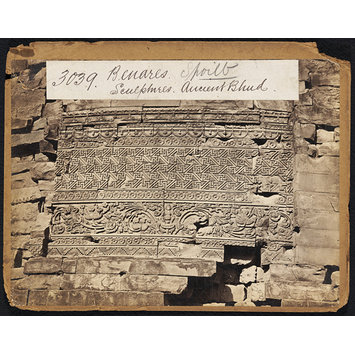 3039. Benares. Spoilt
Sculptures. Ancient Bhud.